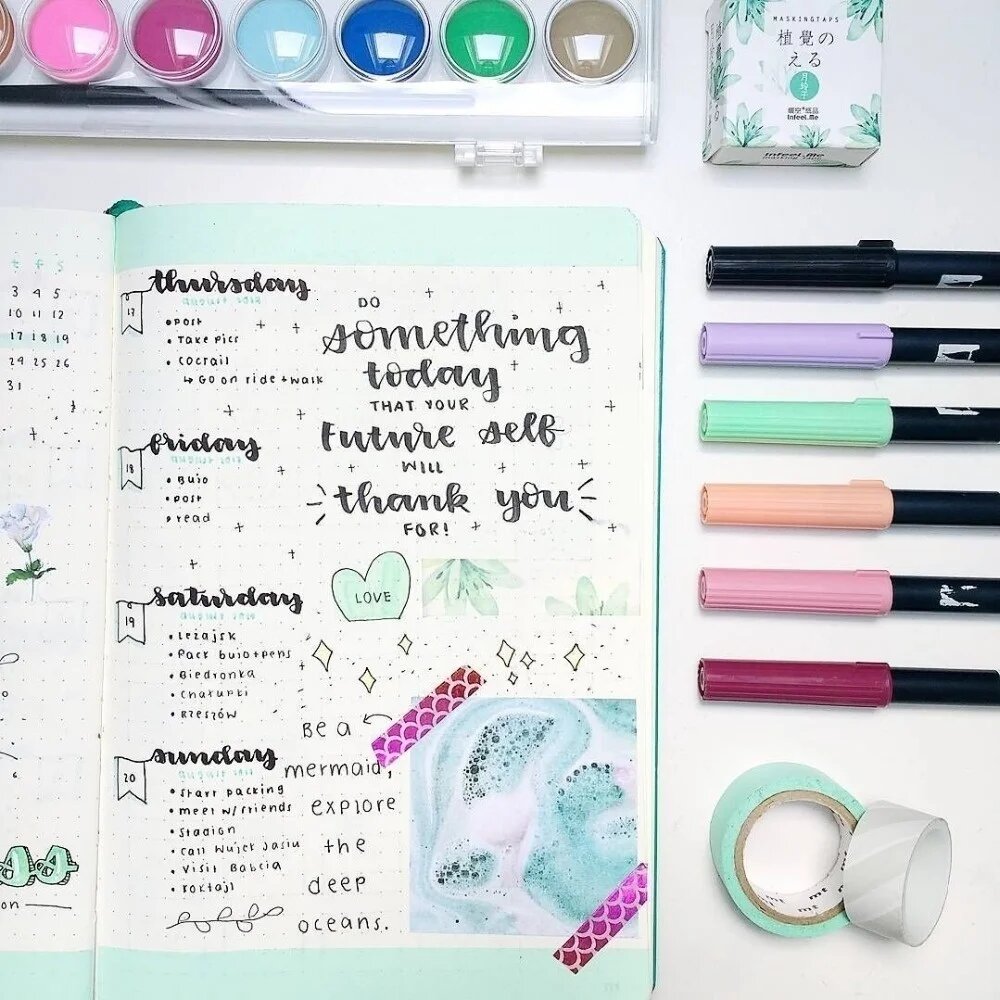 MASKINGTAPS
植覺の
える
月玲子
Infeel.Me
Infeel.Me
T F S
3 4 5
10 11 12
17 18 19
24 25 26
31
thursday
august 2017
17
• post
• Take pics
↳ Go on ride + walk
friday
18
• BUJO
• post
• read
saturday
19
• Leżajsk
• Pack bujo + pens
• Biedronka
• Chałupki
• Rzeszów
sunday
20
• start packing
• meet w/ friends
• Stadion
• call Wujek Jasiu
• Visit Babcia
• koktajl
DO
something
today
THAT YOUR
Future self
WILL
thank you
FOR!
LOVE
Be a
mermaid,
explore
the
deep
oceans.
6
mt